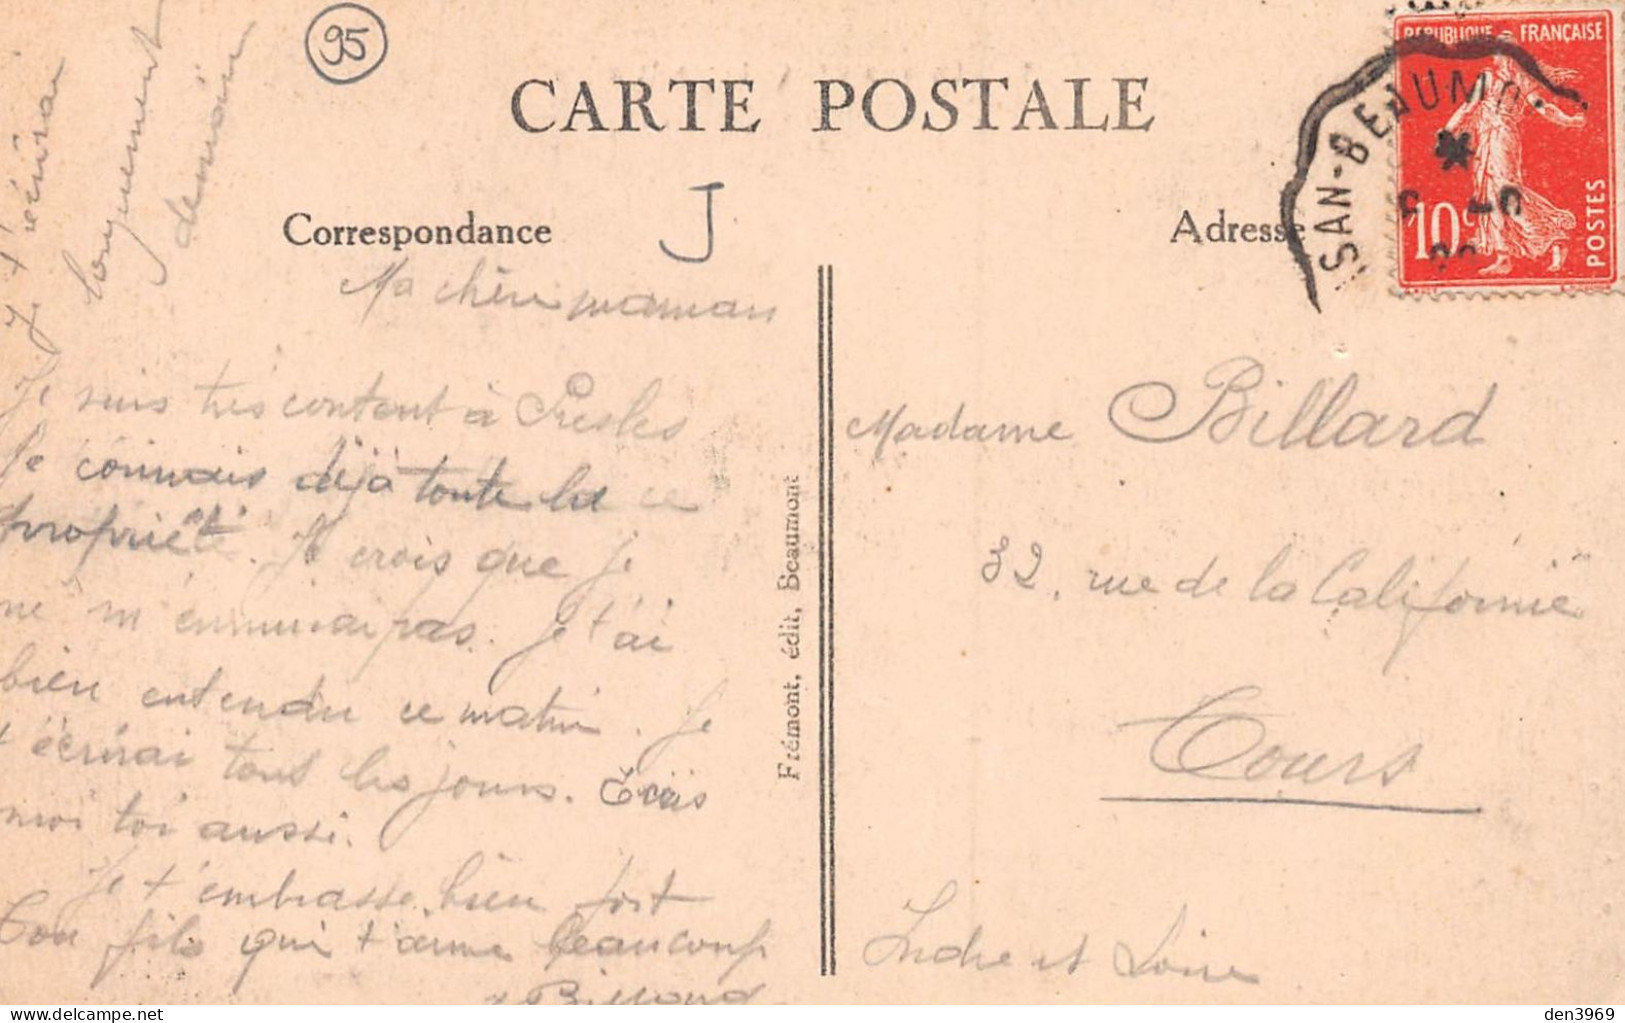 95
CARTE POSTALE
J
Correspondance
Adresse
RÉPUBLIQUE FRANÇAISE
10c
POSTES
SAN-BEAUMO
Je t'écrirai
longuement
demain
Ma chère maman
Je suis très content à Presles
Je connais déjà toute la ce
propriété. Je crois que je
ne m'ennuirai pas. Je t'ai
bien entendu ce matin. Je
t'écrirai tous les jours. Ecris
moi toi aussi.
Je t'embrasse bien fort
Ton fils qui t'aime beaucoup
Billard
Frémont, édit, Beaumont
Madame Billard
32, rue de la Californie
Tours
Indre et Loire
delcampe.net
den3969